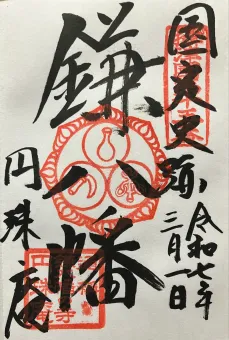 国定史蹟
鎌八幡
円珠庵
令和七年
三月一日